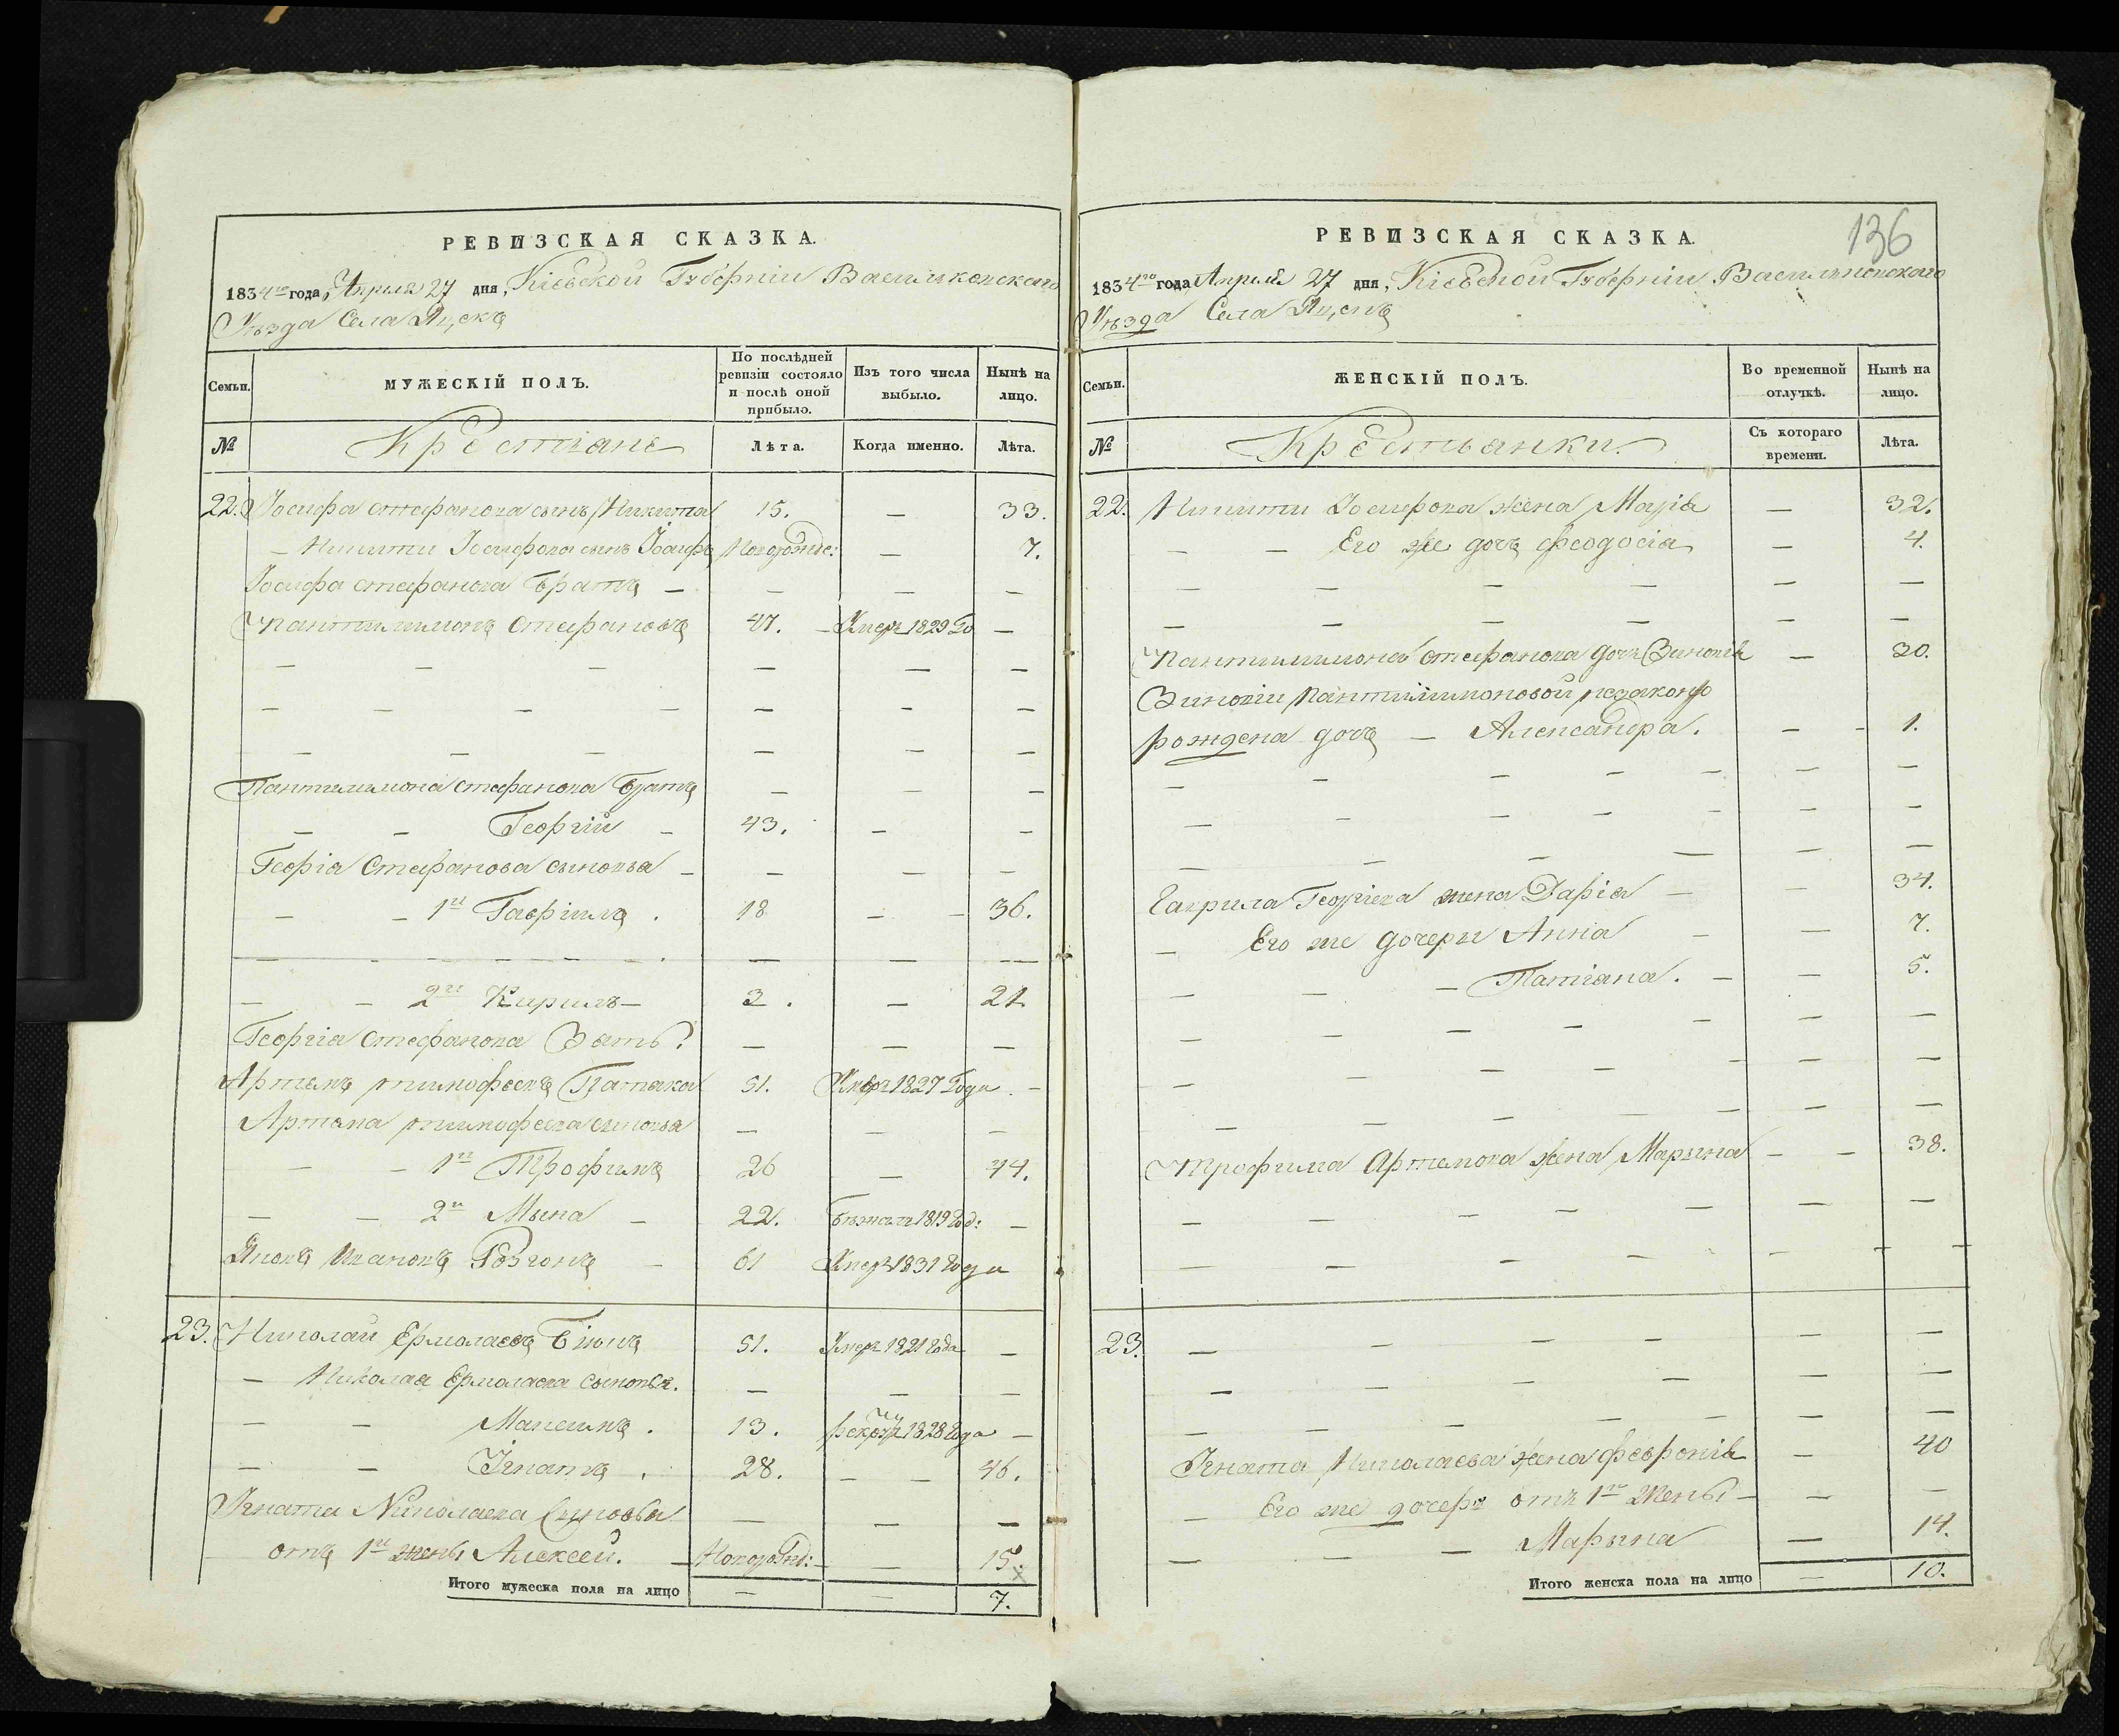 РЕВИЗСКАЯ СКАЗКА.
1834го года, Апреля 27 дня, Кіевской Губерніи Васильковскаго
Уезда Села Яцекъ
Семьи.
МУЖЕСКІЙ ПОЛЪ.
По послѣдней ревизіи состояло и послѣ оной прибыло.
Изъ того числа выбыло.
Нынѣ на лицо.
№ Крестіане Лѣта. Когда именно. Лѣта.
22. Іосифа Стефанова сынъ Никита 15. — 33.
— Никити Іосифова сынъ Іосифъ Новорожде: — 7.
Іосифа Стефанова братъ — — — —
Пантилимонъ Стефановъ 47. Умеръ 1829 Го —
— — — — — —
— — — — — — —
— — — — — —
Пантилимона Стефанова братъ — — —
— — Георгій — 43. — —
Георгія Стефанова сыновья — — — —
— — 1й Гавріилъ . 18 — — 36.
— — — — — — . — — —
— — 2й Кирилъ — 3. — 21.
Георгіа Стефанова Зять? — — —
Артемъ Тимофеевъ Патока 51. Умеръ 1827 Года. —
Артема Тимофеева сыновья — — —
— — 1й Трофимъ 26 — 44.
— — 2й Мына — 22. Бежалъ 1819 Год: —
Яковъ Ивановъ — 61 Умеръ 1831 Года
23. Николай Ермолаевъ 51. Умеръ 1821 Года —
— Николая Ермолаева сыновья. — — —
— — Максимъ . 13. рекрутъ 1828 Года —
— — Игнатъ . 28. — — 46.
Игната Николаева Сыновья — — —
отъ 1й жены Алексей. — Новорожд: — 15.
Итого мужеска пола на лицо — — 7.
136
РЕВИЗСКАЯ СКАЗКА.
1834го года Апреля 27 дня, Кіевской Губерніи Васильковскаго
Уезда Села Яцекъ
Семьи.
ЖЕНСКІЙ ПОЛЪ.
Во временной отлучкѣ.
Нынѣ на лицо.
№ Крестьянки. Съ котораго времени. Лѣта.
22. Никити Іосифова жена Марія — 32.
— — Его же дочь Феодосіа — 4.
— — — — — —
— — — — — —
Пантилимона Стефанова дочь Зиновія — 30.
Зиновіи Пантилимоновой незаконно
рождена дочь — Александра. — - 1.
— — — — — —
— — — — — —
— — — — — —
Гаврила Георгіева жена Дарія — — 34.
— Его же дочеры Анна — — 7.
— — — Татіана. — — 5.
— — — — — —
— — — — — —
— — — — — —
Трофима Артемова жена Марына — — 38.
— — — — — — —
— — — — — —
23. — — — — — —
— — — — — —
— — — — — —
Игната Николаева жена Февронія — 40
— Его же дочерь отъ 1й жены — — —
— — — Марына — 14.
Итого женска пола на лицо — 10.